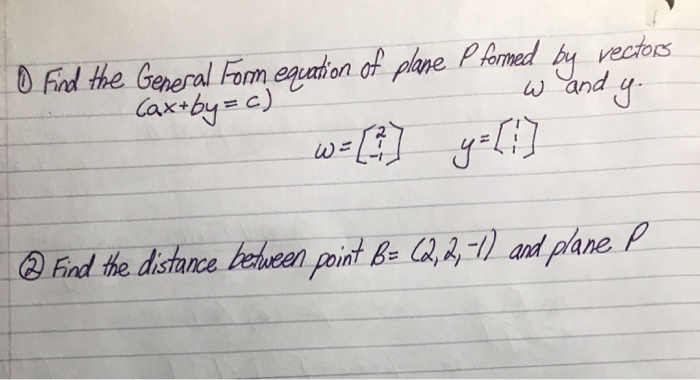 ① Find the General Form equation of plane P formed by vectors
(ax+by=c) w and y.
w=[2 1 -1] y=[1 1 1]
② Find the distance between point B= (2,2,-1) and plane P